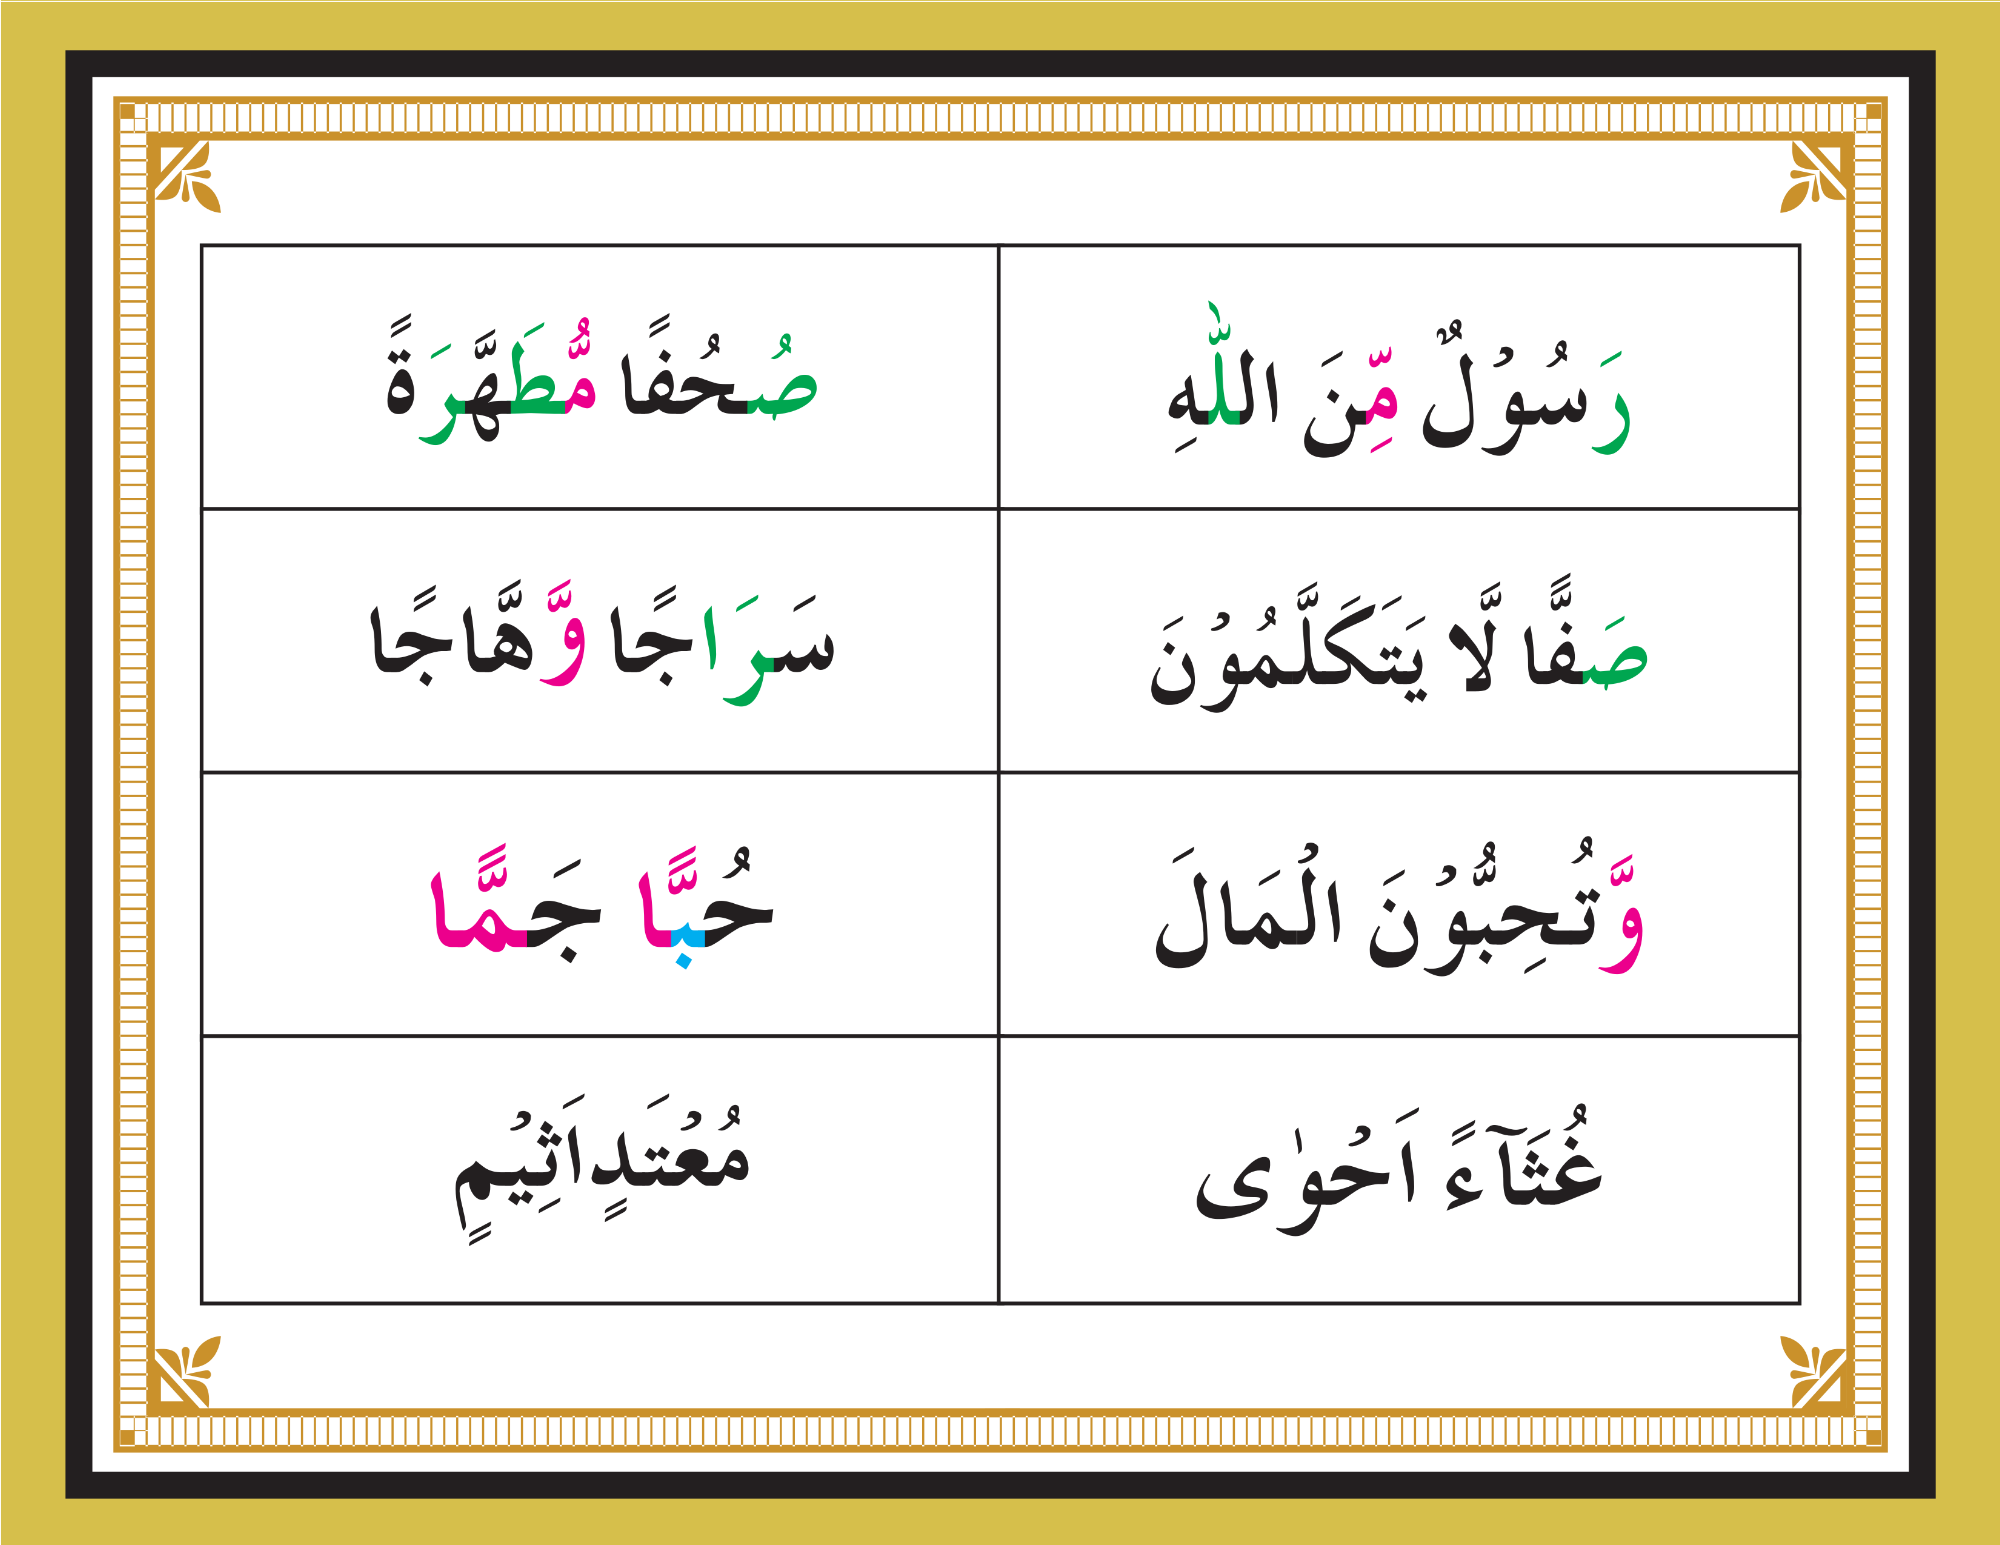 رَسُوْلٌ مِّنَ اللّٰهِ
صُحُفًا مُّطَهَّرَةً
صَفًّا لَّا يَتَكَلَّمُوْنَ
سَرَاجًا وَّهَّاجًا
وَّتُحِبُّوْنَ الْمَالَ
حُبًّا جَمًّا
غُثَآءً اَحْوٰى
مُعْتَدٍاَثِيْمٍ